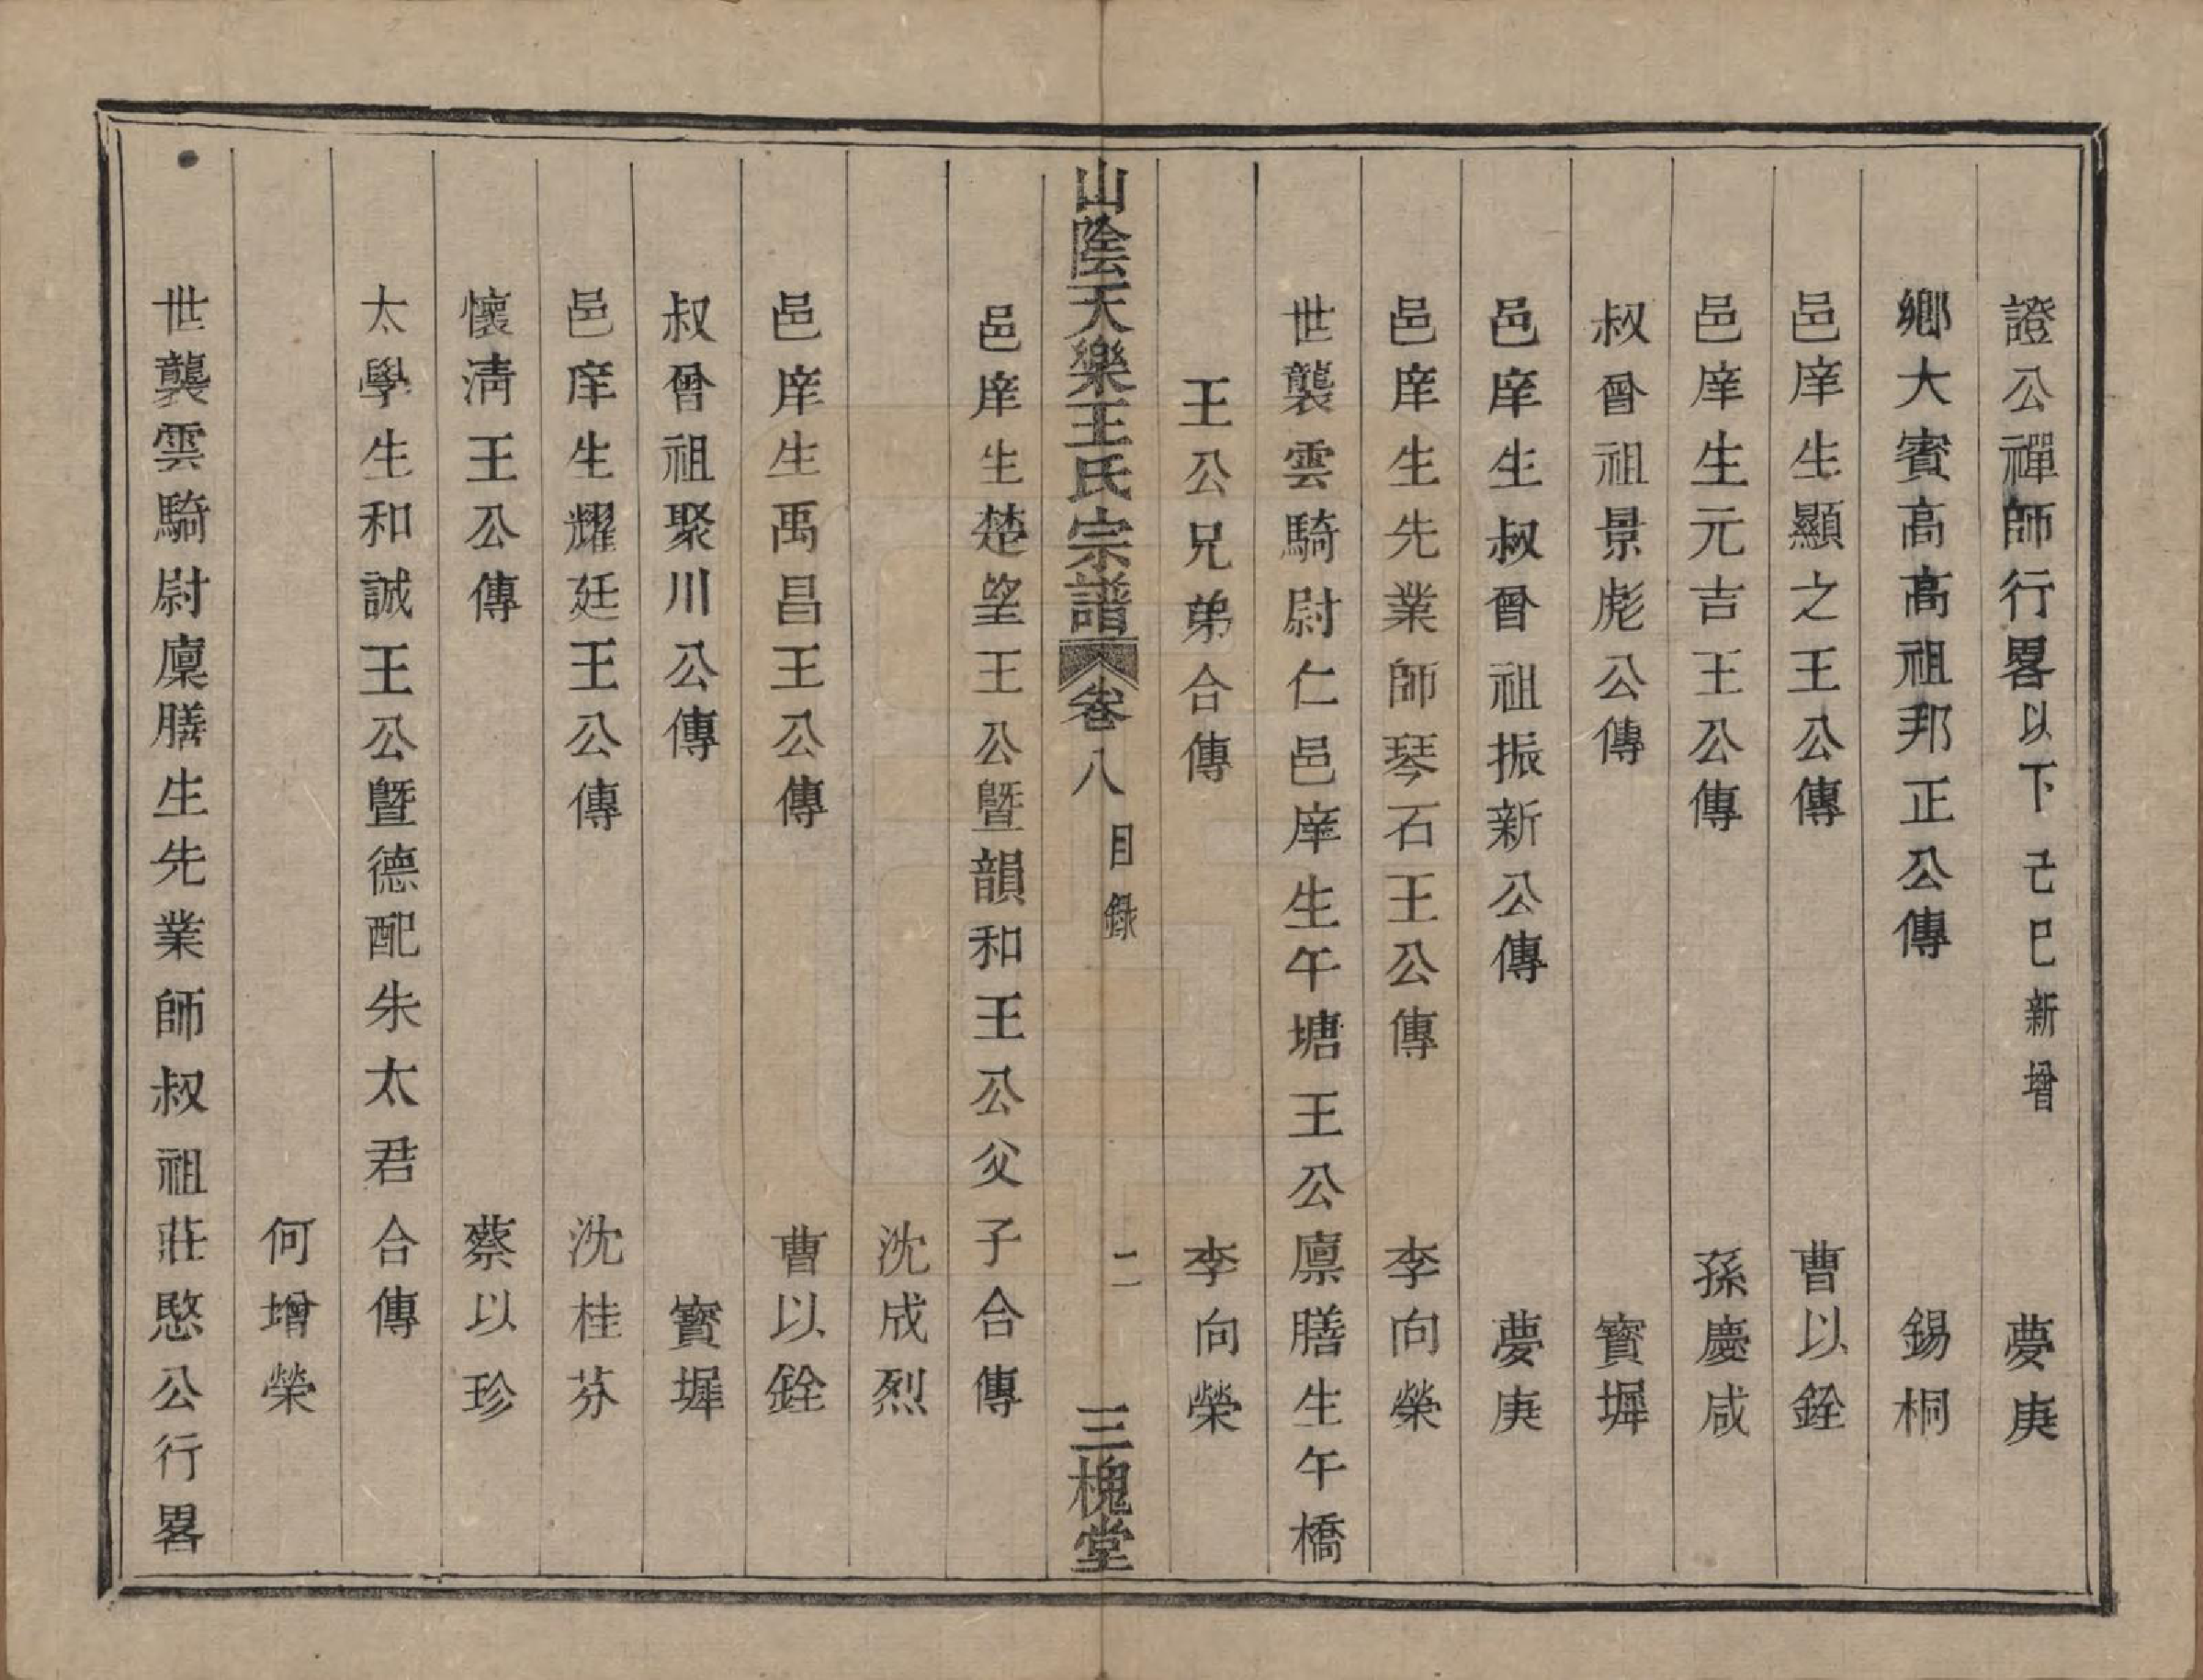 證公禪師行畧以下己巳新增 夢庚
鄉大賓高高祖邦正公傳 錫桐
邑庠生顯之王公傳 曹以銓
邑庠生元吉王公傳 孫慶咸
叔曾祖景彪公傳 寶墀
邑庠生叔曾祖振新公傳 夢庚
邑庠生先業師琴石王公傳 李向榮
世襲雲騎尉仁邑庠生午塘王公廩膳生午橋
王公兄弟合傳 李向榮
山陰天樂王氏宗譜 卷八 目錄 二 三槐堂
邑庠生楚望王公暨韻和王公父子合傳
沈成烈
邑庠生禹昌王公傳 曹以銓
叔曾祖聚川公傳 寶墀
邑庠生耀廷王公傳 沈桂芬
懷清王公傳 蔡以珍
太學生和誠王公暨德配朱太君合傳
何增榮
世襲雲騎尉廩膳生先業師叔祖莊愍公行畧